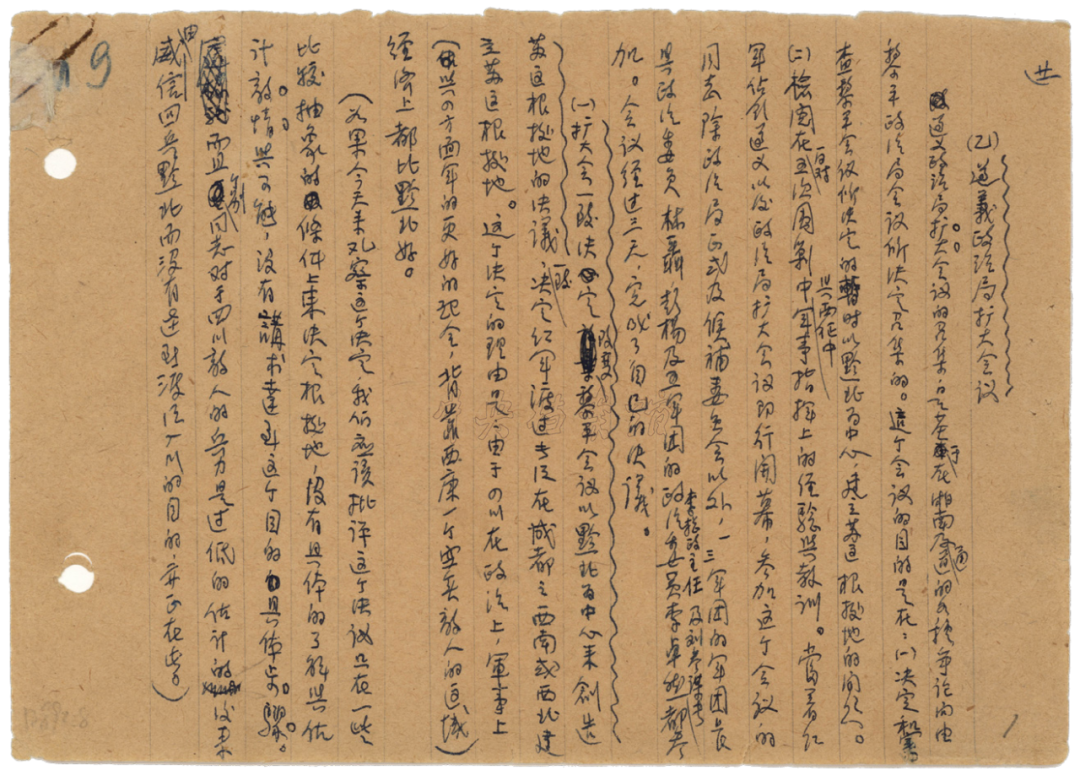 (廿)
(乙) 遵義政治局扩大会议
遵义政治局扩大会议的召集，是基于在湘南及通道的各种争论而由
黎平政治局会议所决定召集的。这个会议的目的是在：(一)决定和審
查黎平会议所决定的暫时以黔北为中心，建立苏区根拠地的问题。
(二)检阅在反对五次围剿中与西征中軍事指揮上的经驗与教訓。当着红
軍佔领遵义以后政治局扩大会议即行開幕，参加这个会议的
同志除政治局正式及候補委员会以外，一三軍团的軍团長
与政治委员林聶彭楊及五軍团的政治委員李卓然李總政主任及刘参謀長都参
加。会议经过三天，完成了自己的决議。
(一)扩大会一致决定改变黎平会议以黔北为中心来創造
苏区根拠地的决議，一致决定红軍渡过长江在成都之西南或西北建
立苏区根拠地。这个决定的理由是：由于四川在政治上，軍事上
(与四方面军的更好的配合，背靠西康一个空無敌人的区域)
经济上都比黔北好。
(如果今天来观察这个决定我们应該批评这个决议只在一些
比较抽象的條件上来决定根拠地，没有具体的了解与估
计敌情与可能，没有講求達到这个目的的具体步驟。
而且个别同志对于四川敌人的兵力是过低的估计的，後来
由威信回兵黔北而没有達到渡江入川的目的，亦正在此)
9